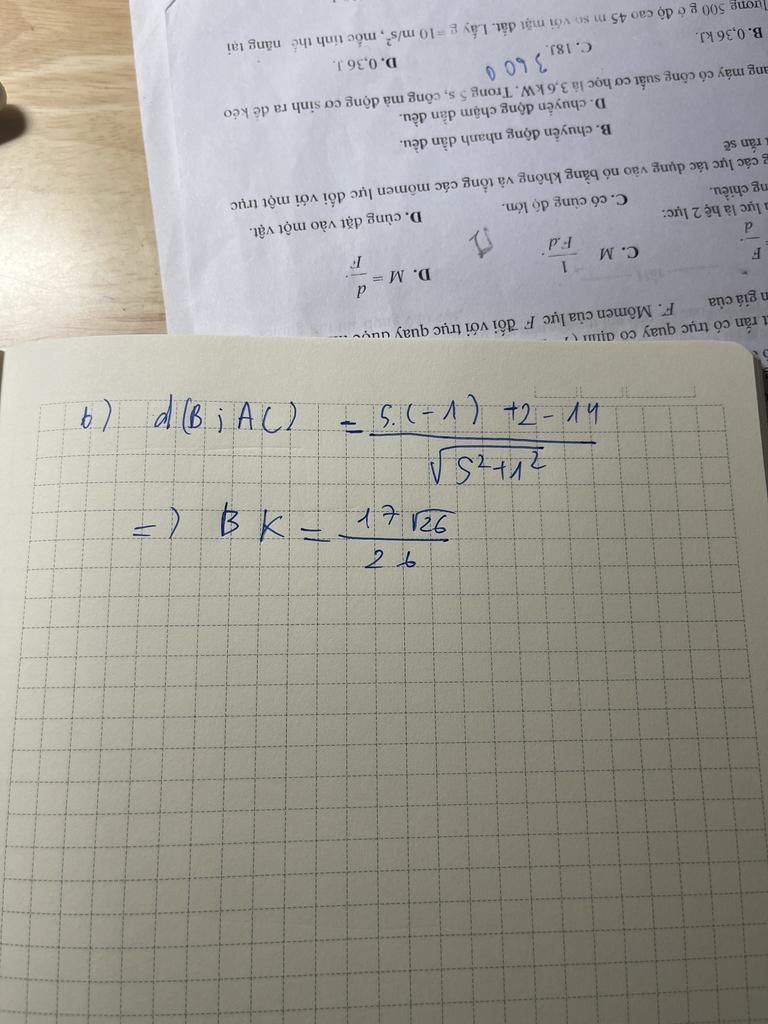 lượng 500 g ở độ cao 45 m so với mặt đất. Lấy g =10 m/s², mốc tính thế năng tại
B. 0,36 kJ. C. 18J. D. 0,36 J.
3600
ang máy có công suất cơ học là 3,6 kW. Trong 5 s, công mà động cơ sinh ra để kéo
D. chuyển động chậm dần đều.
B. chuyển động nhanh dần đều.
t rắn sẽ
g các lực tác dụng vào nó bằng không và tổng các mômen lực đối với một trục
ng chiều. C. có cùng độ lớn. D. cùng đặt vào một vật.
lực là hệ 2 lực:
= F/d. C. M 1/F.d. D. M = d/F.
n giá của F. Mômen của lực F đối với trục quay được
t rắn có trục quay cố định
b) d(B; AC) = 5.(-1) +2-14 / √5²+1²
=) BK = 17√26 / 26